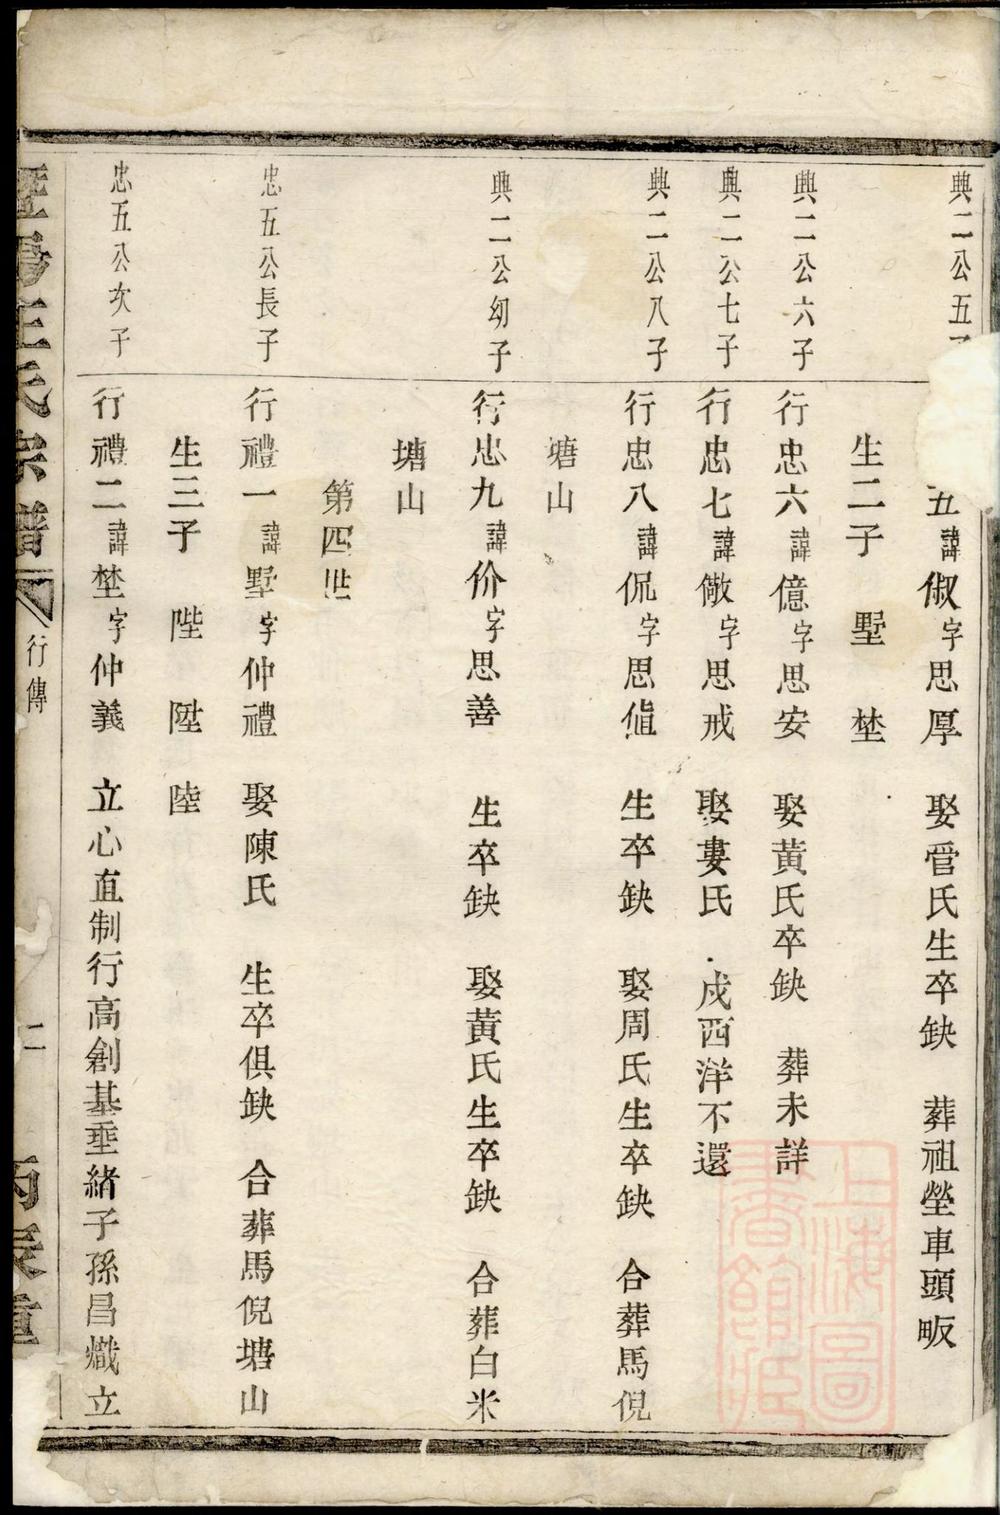 典二公五
五諱俶字思厚 娶管氏生卒缺 葬祖塋車頭畈
生二子 墅 埜
典二公六子
行忠六諱億字思安 娶黃氏卒缺 葬未詳
典二公七子
行忠七諱儆字思戒 娶婁氏 戍西洋不還
典二公八子
行忠八諱侃字思值 生卒缺 娶周氏生卒缺 合葬馬倪
塘山
典二公幼子
行忠九諱价字思善 生卒缺 娶黃氏生卒缺 合葬白米
塘山
第四世
忠五公長子
行禮一諱墅字仲禮 娶陳氏 生卒俱缺 合葬馬倪塘山
生三子 陛 陞 陸
忠五公次子
行禮二諱埜字仲義 立心直制行高創基垂緒子孫昌熾立
暨陽王氏宗譜 行傳 二 丙辰重
上海圖書館藏